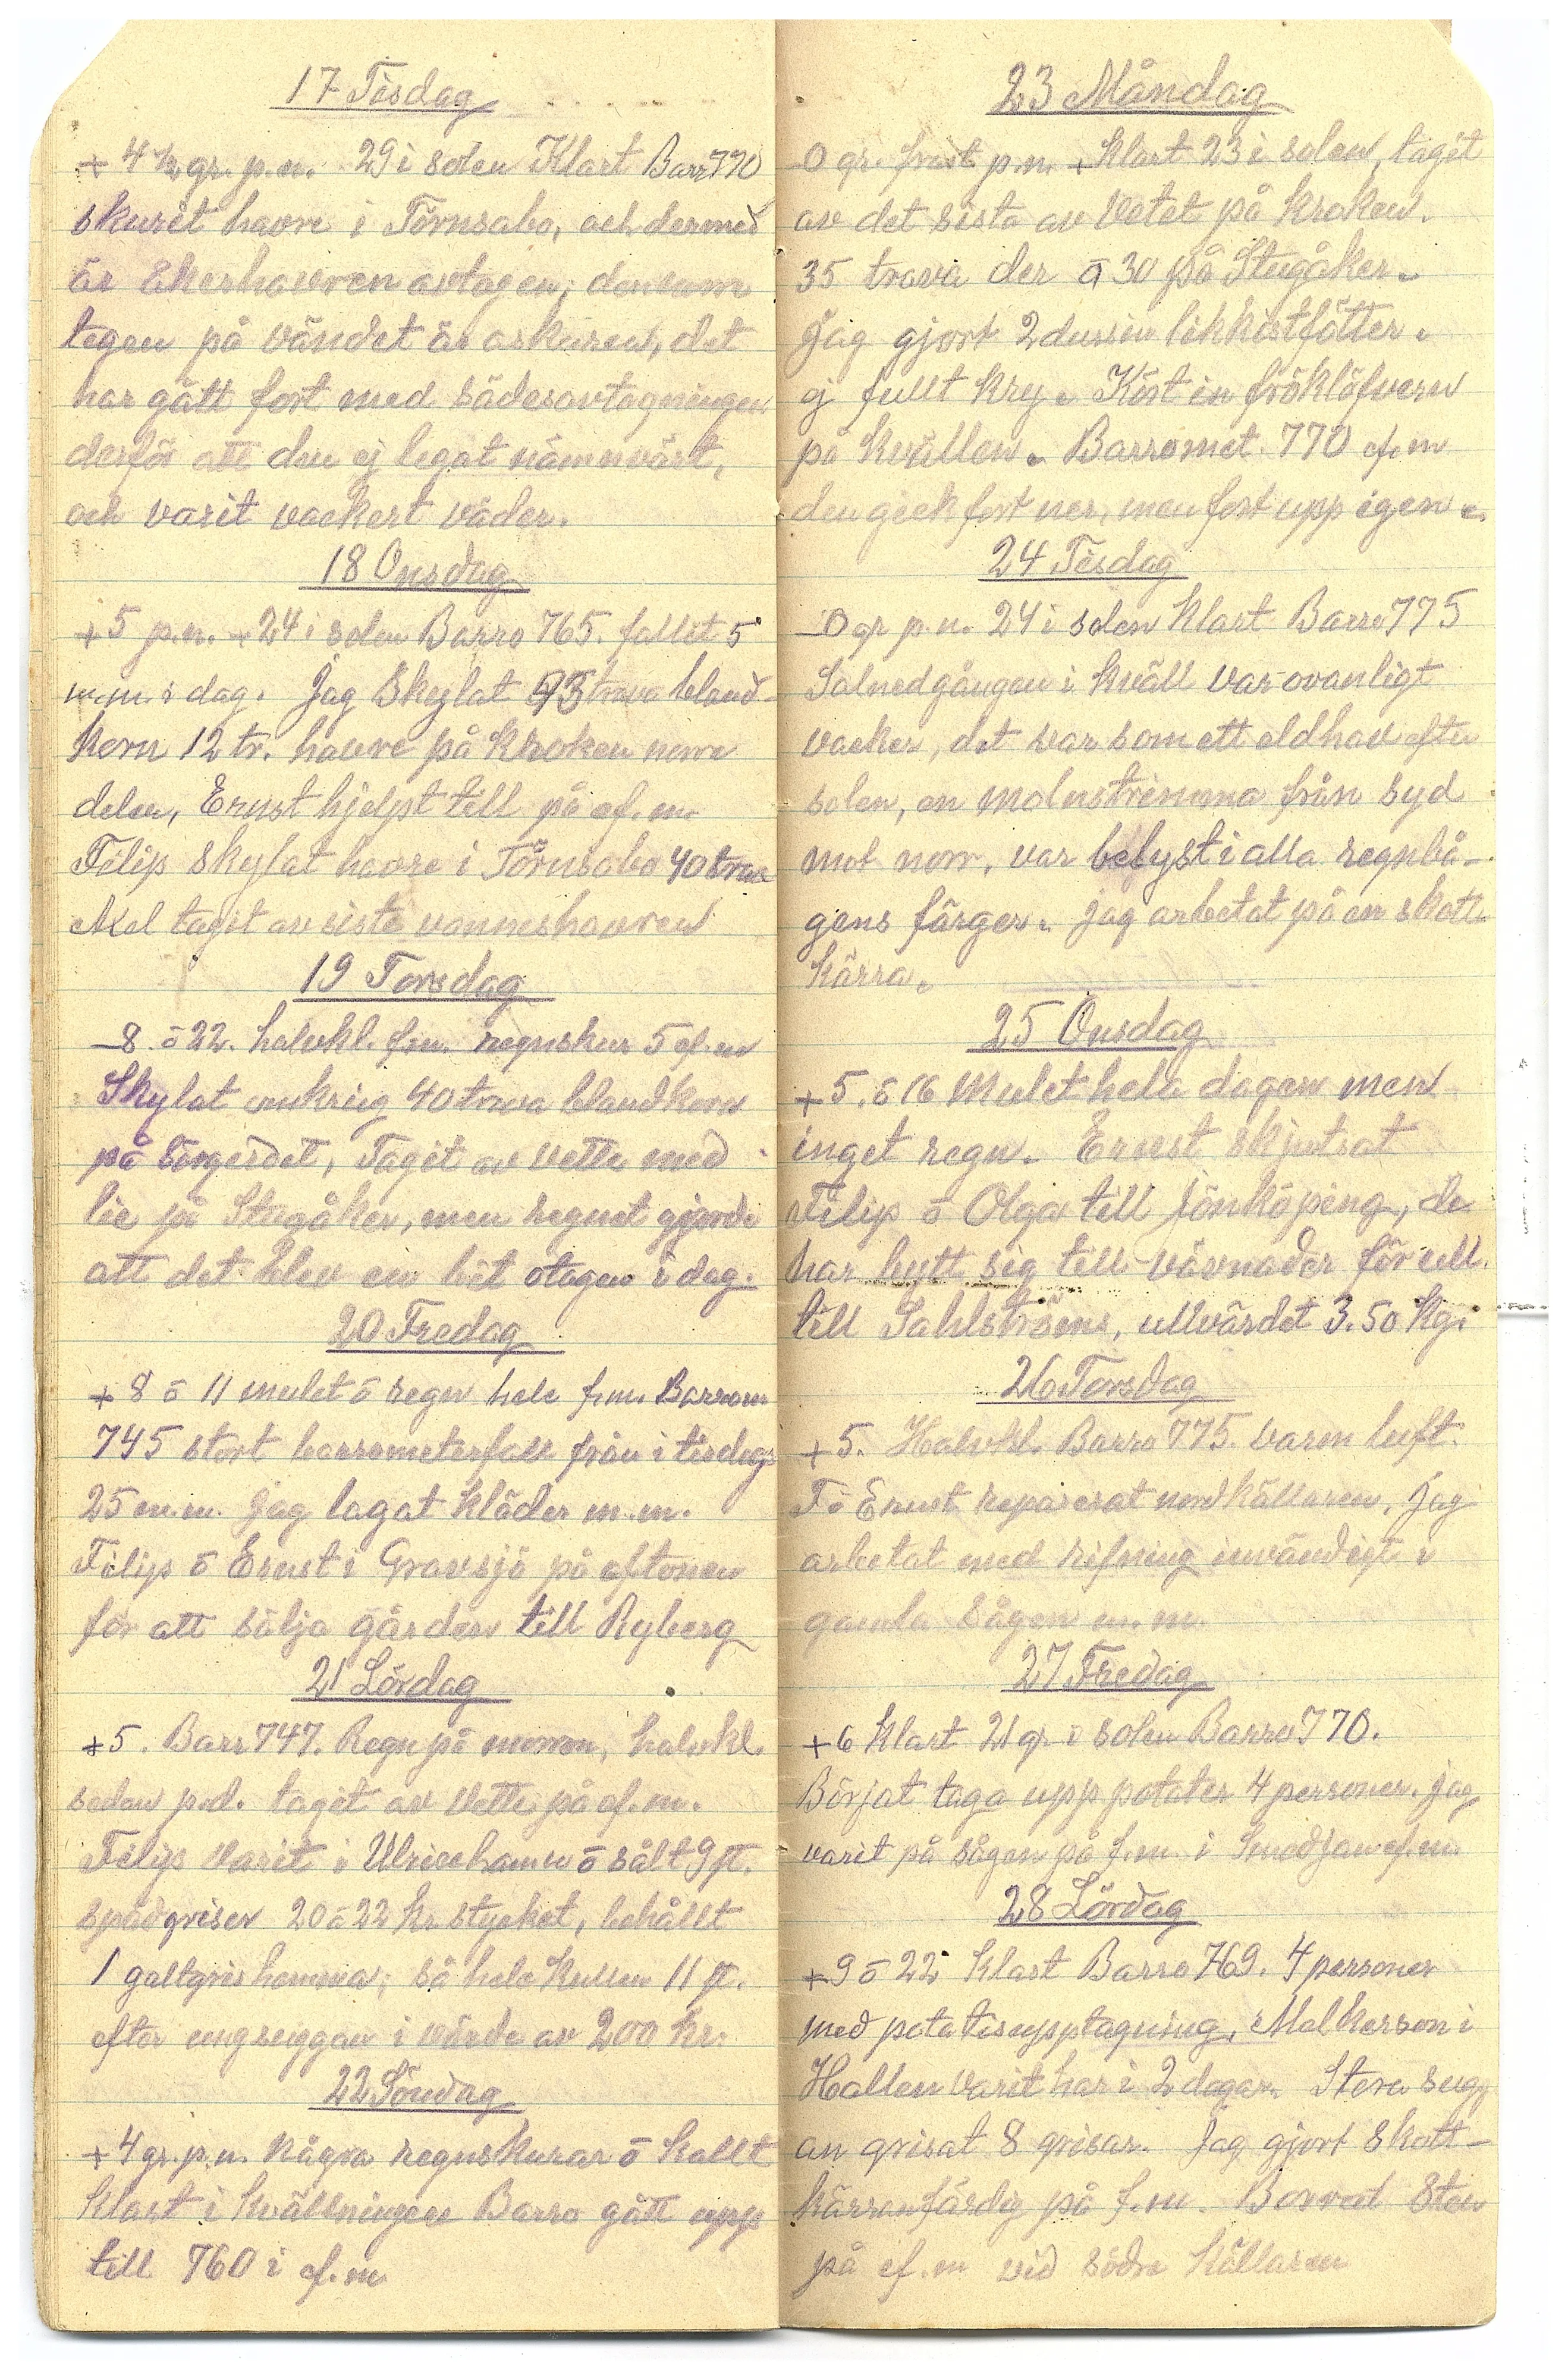 17 Tisdag
+ 4 ½ gr. p.n. 29 i solen Klart Barr 770
skurit havre i Törnsabo, och dermed
är åkerhavren avtagen,
tegen på vändet är oskuren, det
har gått fort med sädesavtagningen
derför att den ej legat nämnvärt,
och varit vackert väder.
18 Onsdag
+5 p.n. +24 i solen Barro 765. fallit 5
m.m. i dag. Jag Skylat trava bland-
korn 12 tr. havre på Kroken norra
delen, Ernst hjelpt till på ef.m.
Filip skylat havre i Törnsabo 40 trav
Axel tagit av siste vanneshavren
19 Torsdag
8 ö 22. halvkl. f.m. regnskur 5 ef.m
Skylat omkring 40 trava blandkorn
på Tagit av vette med
lie på Stugåker, men regnet gjorde
att det blev en bit otagen i dag.
20 Fredag
+ 8 ö 11 mulet ö regn hela f.m. Barrom
745 stort barrometerfall från i tisdags
25 m.m. Jag lagat kläder m.m.
Filip ö Ernst i Gravsjö på aftonen
för att sälja gården till Ryberg
21 Lördag
+5. Barr 747. Regn på morron, halvkl.
sedan p.d. tagit av vette på ef.m.
Filip varit i Ulricehamn ö sålt 9 st.
spädgriser 20 ö 22 kr stycket, behållt
1 galtgris hemma, så hela kullen 11 st.
efter ungsuggan i värde av 200 kr.
22 Söndag
+4 gr. p.n. några regnskurar ö kallt
klart i kvällningen Barro gått upp
till 760 i ef.m
23 Måndag
0 gr. frost p.n. klart 23 i solen, tagit
av det sista av vetet på kroken.
35 trava der ö 30 på Stugåker.
Jag gjort 2 dussin likkistfötter.
ej fullt kry. Kört in fröklöfvern
på kvällen. Barromet. 770 ef.m
den gick fort ner, men fort upp igen.
24 Tisdag
0 gr p.n. 24 i solen klart Barro 775
Solnedgången i kväll var ovanligt
vacker, det var som ett eldhav efter
solen, en molnstrimma från syd
mot norr, var belyst i alla regnbå-
gens färger. Jag arbetat på en skott-
kärra.
25 Onsdag
+5. ö 16 Mulet hela dagen men
inget regn. Ernst skjutsat
Filip ö Olga till Jönköping, de
har bytt sig till vävnader för ull
till Sahlströms, ullvärdet 3.50 kg.
26 Torsdag
+5. Halvkl. Barro 775. varm luft.
F ö Ernst reparerat nordkällaren. Jag
arbetat med rifning invändigt i
gamla sågen m.m.
27 Fredag
+6 klart 21 gr. i solen Barro 770.
Börjat taga upp potater 4 personer. Jag
varit på sågen på f.m. i Smedjan ef.m.
28 Lördag
+9 ö 22 klart Barro 769. 4 personer
med potatisupptagning. Melkerson i
Hallen varit här i 2 dagar. Stora sugg
an grisat 8 grisar. Jag gjort skott-
kärran färdig på f.m. Borrat Sten
på ef.m vid södra källaren